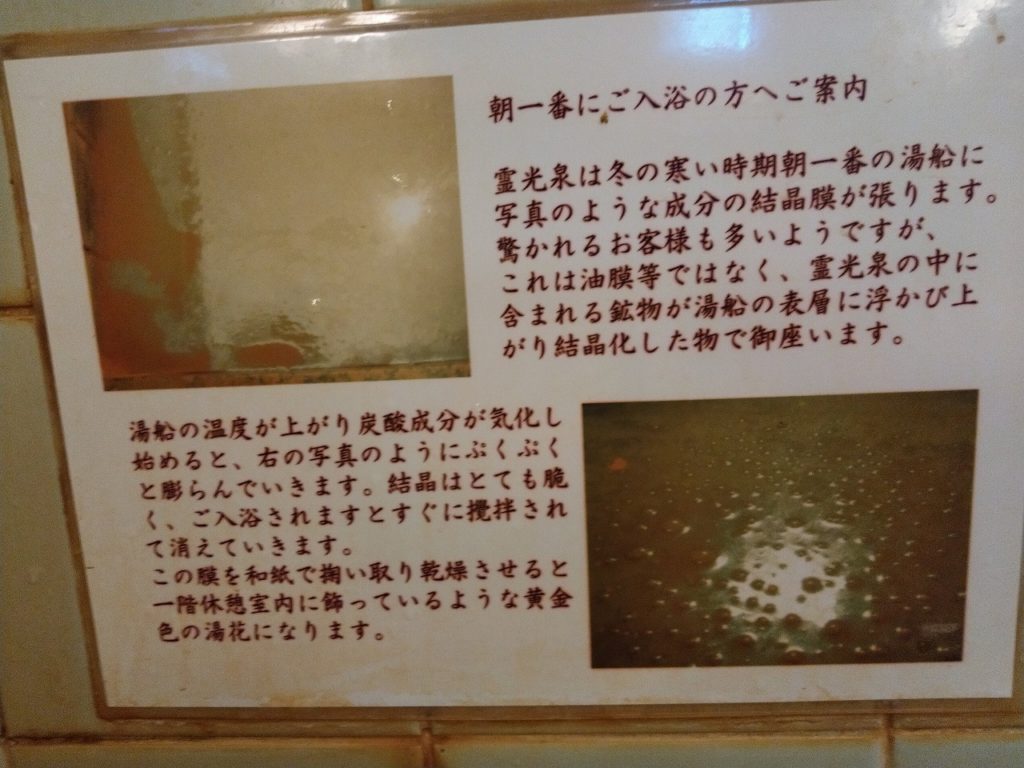 朝一番にご入浴の方へご案内
霊光泉は冬の寒い時期朝一番の湯船に
写真のような成分の結晶膜が張ります。
驚かれるお客様も多いようですが、
これは油膜等ではなく、霊光泉の中に
含まれる鉱物が湯船の表層に浮かび上
がり結晶化した物で御座います。
湯船の温度が上がり炭酸成分が気化し
始めると、右の写真のようにぷくぷく
と膨らんでいきます。結晶はとても脆
く、ご入浴されますとすぐに攪拌され
て消えていきます。
この膜を和紙で掬い取り乾燥させると
一階休憩室内に飾っているような黄金
色の湯花になります。